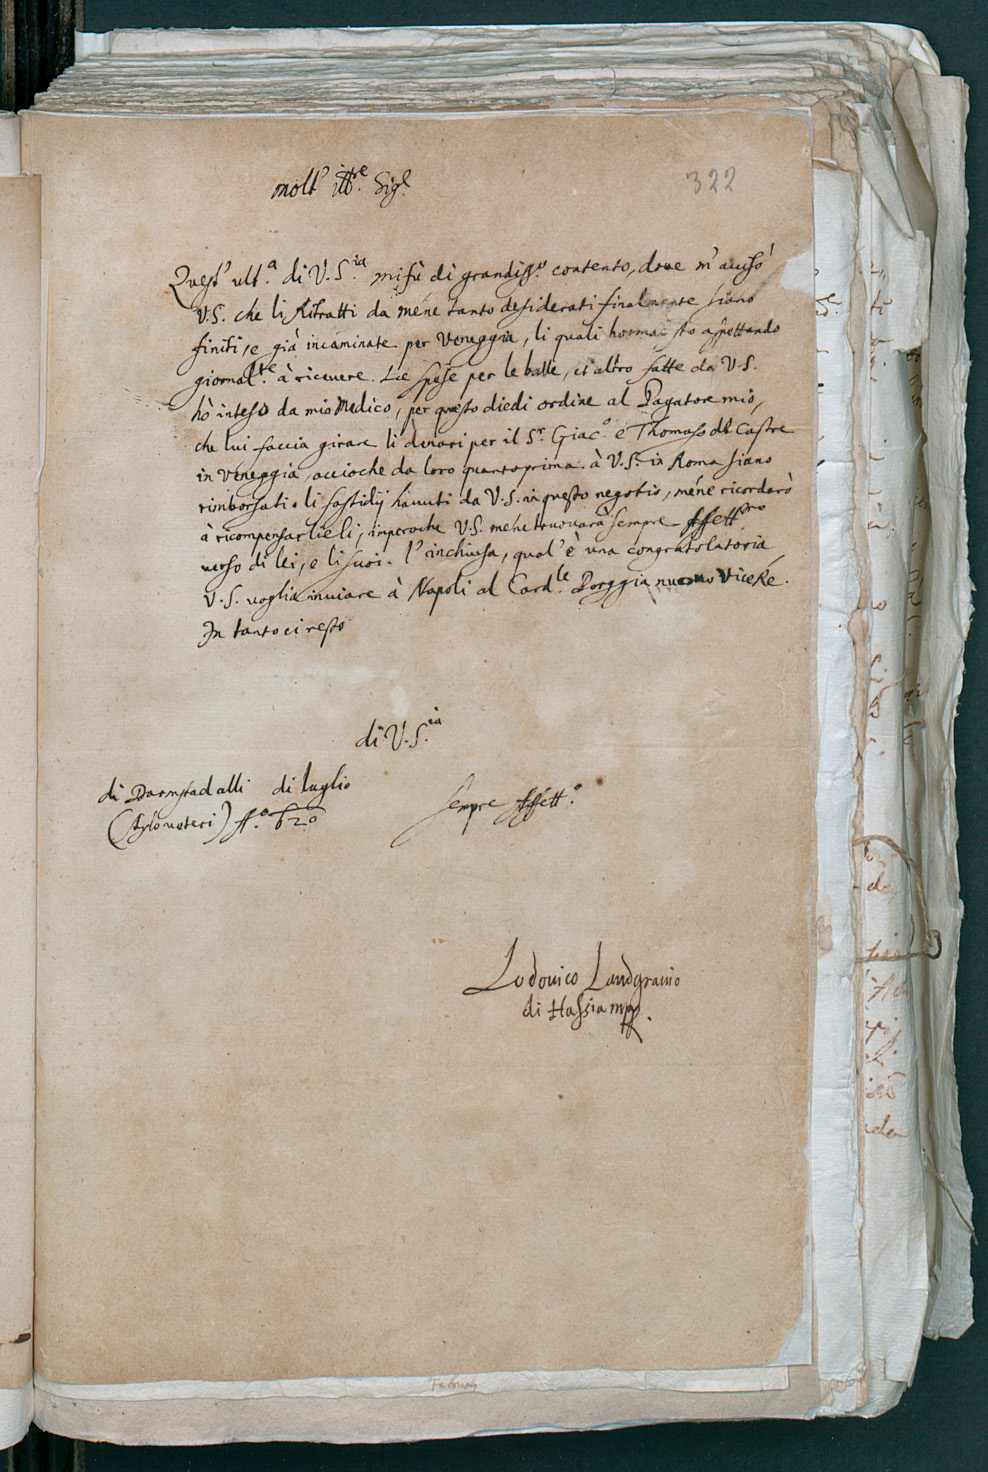 molt' ill.re Sig.e
322
Quest' ult.a di V.S.ia mi fù di grandiss.o contento, doue m' auisò
V.S. che li Ritratti da méne tanto desiderati finalmente siano
finiti, e già incaminate per Veneggia, li quali hormai sto aspettando
giornal.te à riceuere. Le spese per le balle, et altro fatte da V.S.
hò inteso da mio Medico, per questo diedi ordine al Pagatore mio,
che lui faccia girare li denari per il S.r Giac.o e Thomaso de Castre
in Veneggia, accioche da loro quanto prima à V.S. in Roma siano
rimborsati. li fastidij hauuti da V.S. in questo negotio, méne ricordarò
à ricompensarlieli, imperoche V.S. mene trouuarà sempre Affett.mo
verso di lei, e li suoi. l'inchiusa, qual' è una congratolatoria,
V.S. voglia inuiare à Napoli al Card.le Borggia nuouo ViceRé.
In tanto ci resto
di V.S.ia
di Darmstad alli di luglio
(stylo veteri) A.o 620
sempre Affett.o
Lodouico Landgrauio
di Hassia mpp.